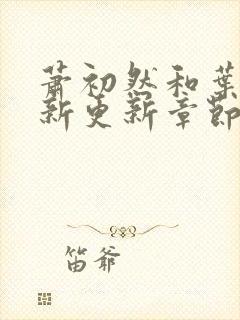 萧初然和葉
新更新章節
笛爷